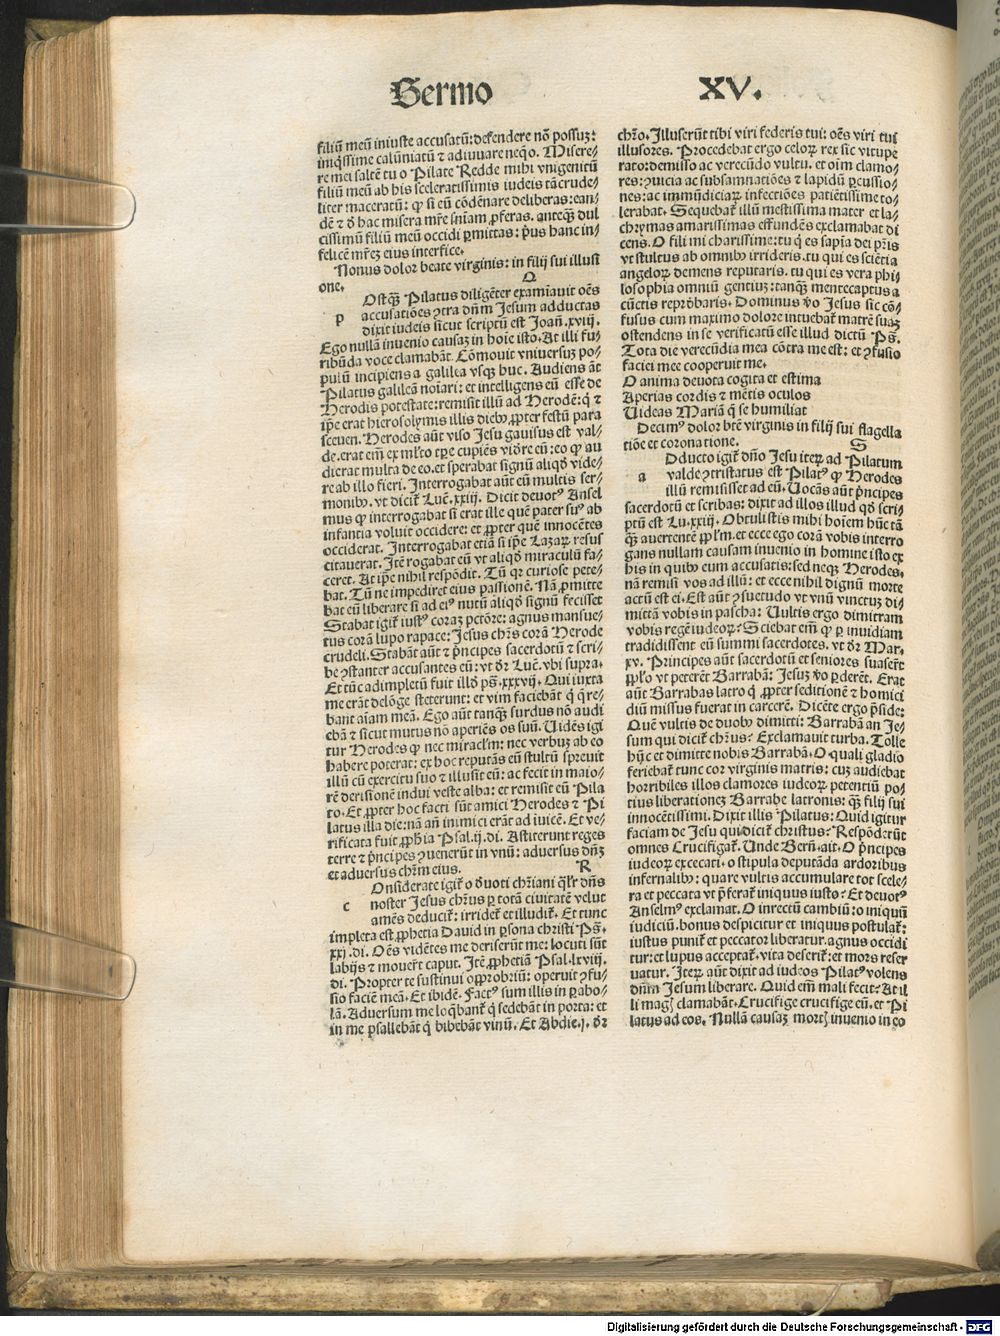 Sermo XV.
filiũ meũ iniuste accusatũ: defendere nõ possuʒ:
iniq̃ssime calũniatũ ⁊ adiuuare neq̃o. Misere⸗
re mei saltẽ tu o Pilate Redde mihi vnigenitũ
filiũ meũ ab his sceleratissimis iudeis tã crude⸗
liter maceratũ: qꝫ si eũ cõdẽnare deliberas: ean⸗
dẽ ⁊ ď hac misera mr̃e sñiam ꝓferas. anteq̃ʒ dul
cissimũ filiũ meũ occidi ꝑmittas: pͥus hanc in⸗
felicẽ mr̃eʒ eius interfice.
Nonus dolor beate virginis: in filij sui illusi
one. Q
p Ostq̃ʒ Pilatus diligẽter examĩauit oẽs
accusatiões ꝯtra dñm Jesum adductas
dixit iudeis sicut scriptũ est Joañ. xviij.
Ego nullã inuenio causaʒ in hoĩe isto. At illi fu⸗
ribũda voce clamabãt. Cõmouit vniuersuʒ po⸗
pulũ incipiens a galilea vsqʒ huc. Audiens āt
Pilatus galileã noĩari: et intelligens eũ esse de
Herodis potestate: remisit illũ ad Herodẽ: q̃ ⁊
ip̃e erat hierosolymis illis diebꝰ ꝓpter festũ para
sceuen. Herodes aũt viso Jesu gauisus est val⸗
de. erat em̃ ex ml̃to tp̃e cupiẽs vidẽre eũ: eo qꝫ au
dierat multa de eo. et sperabat signũ aliqđ vide⸗
re ab illo fieri. Interrogabat aũt eũ multis ser⸗
monibꝰ. vt dicit̃ Luẽ. xxiij. Dicit deuotꝰ Ansel
mus qꝫ interrogabat si erat ille quẽ pater suꝰ ab
infantia voluit occidere: et ꝓpter quẽ innocẽtes
occiderat. Interrogabat etiã si ip̃e Lazarꝫ resus
citauerat. Itẽ rogabat eũ vt aliqđ miraculũ fa⸗
ceret. At ip̃e nihil respõdit. Tũ qꝛ curiose pete⸗
bat. Tũ ne impediret eius passionẽ. Nã ꝓmitte
bat eũ liberare si ad eiꝰ nutũ aliqđ signũ fecisset
Stabat igit̃ iustꝰ coraʒ petõre: agnus mansue⸗
tus corã lupo rapace: Jesus chr̃s corã Herode
crudeli. Stabãt aũt ⁊ pͥncipes sacerdotũ ⁊ scri⸗
be ꝯstanter accusantes eũ: vt dr̃ Luẽ. vbi supra.
Et tũc adimpletũ fuit illđ pš. xxxvij. Qui iuxta
me erãt delõge steterunt: et vim faciebãt q̃ q̃re⸗
bant aĩam meã. Ego aũt tanq̃ʒ surdus nõ audi
ebã ⁊ sicut mutus nõ aperiẽs os suũ. Uidẽs igi
tur Herodes qꝫ nec miracl̃m: nec verbuʒ ab eo
habere poterat: ex hoc reputãs eũ stultũ spreuit
illũ cũ exercitu suo ⁊ illusit eũ: ac fecit in maio⸗
rẽ derisionẽ indui veste alba: et remisit eũ Pila
to. Et ꝓpter hoc facti sũt amici Herodes ⁊ Pi
latus illa die: nã añ inimici erãt ad iuicẽ. Et ve⸗
rificata fuit ꝓph̃ia Psal. ij. di. Astiterunt reges
terre ⁊ pͥncipes ꝯuenerũt in vnũ: aduersus dñʒ
et aduersus chr̃m eius. R
c Onsiderate igit̃ o ďuoti chr̃iani q̃lr̃ dñs
noster Jesus chr̃us ꝑ totã ciuitatẽ velut
amẽs deducit̃: irridet̃ et illudit̃. Et tunc
impleta est ꝓphetia Dauid in ꝑsona christi Pš.
xxj. di. Oẽs vidẽtes me deriserũt me: locuti sũt
labijs ⁊ mouer̃t caput. Itẽ ꝓphetiã Psal. lxviij.
di. Propter te sustinui opꝓbriũ: operuit ꝯfu⸗
sio faciẽ meã. Et ibidẽ. Factꝰ sum illis in ꝑabo⸗
lã. Aduersum me loq̃bant̃ q̃ sedebãt in porta: et
in me psallebãt q̃ bibebãt vinũ. Et Abdie. j. dr̃
chr̃o. Illuserũt tibi viri federis tui: oẽs viri tui
illusores. Procedebat ergo celoꝝ rex sic vitupe
rato: demisso ac verecũdo vultu. et oĩm clamo⸗
res: ꝯuicia ac subsamnatiões ⁊ lapidũ ꝑcussio⸗
nes: ac immũdiciaꝝ infectiões patiẽtissime to⸗
lerabat. Sequebat̃ illũ mestissima mater et la⸗
chrymas amarissimas effundẽs exclamabat di
cens. O fili mi charissime: tu q̃ es sapĩa dei pr̃is
vt stultus ab omnibꝰ irrideris. tu qui es sciẽtia
angeloꝝ demens reputaris. tu qui es vera phi⸗
losophia omniũ gentiuʒ: tanq̃ʒ mentecaptus a
cũctis reprobaris. Dominus ṽo Jesus sic cõ⸗
fusus cum maximo dolore intuebat̃ matrẽ suaʒ
ostendens in se verificatũ esse illud dictũ Pš.
Tota die verecũdia mea cõtra me est: et ꝯfusio
faciei mee cooperuit me.
O anima deuota cogita et estima
Aperias cordis ⁊ mẽtis oculos
Uideas Mariã q̃ se humiliat
Decimꝰ dolor btẽ virginis in filij sui flagella
tiõe et coronatione. S
a Dducto igit̃ dño Jesu iteꝝ ad Pilatum
valde ꝯtristatus est Pilatꝰ qꝫ Herodes
illũ remisisset ad eũ. Uocãs aũt pͥncipes
sacerdotũ et scribas: dixit ad illos illud qđ scri⸗
ptũ est Lu. xxiij. Obtulistis mihi hoĩem hũc tã
q̃ʒ auertentẽ ppl̃m. et ecce ego corã vobis interro
gans nullam causam inuenio in homine isto ex
his in quibꝰ eum accusatis: sed neqʒ Herodes.
nã remisi vos ad illũ: et ecce nihil dignũ morte
actũ est ei. Est aũt ꝯsuetudo vt vnũ vinctuʒ di⸗
mittã vobis in pascha: Uultis ergo dimitram
vobis regẽ iudeoꝝ? Sciebat em̃ qꝫ ꝑ inuidiam
tradidissent eũ summi sacerdotes. vt dr̃ Mar.
xv. Principes aũt sacerdotũ et seniores suaser̃t
ppl̃o vt peterẽt Barrabã: Jesuʒ ṽo ꝑderẽt. Erat
aũt Barrabas latro q̃ ꝓpter seditionẽ ⁊ homici
diũ missus fuerat in carcerẽ. Dicẽte ergo pͥside:
Quẽ vultis de duobꝰ dimitti: Barrabã an Je⸗
sum qui dicit̃ chr̃us? Exclamauit turba. Tolle
hũc et dimitte nobis Barrabã. O quali gladio
feriebat̃ tunc cor virginis matris: cuʒ audiebat
horribiles illos clamores iudeoꝝ petentiũ po⸗
tius liberationeʒ Barrabe latronis: q̃ʒ filij sui
innocẽtissimi. Dixit illis Pilatus: Quid igitur
faciam de Jesu qui dicit̃ christus? Respõderũt
omnes Crucifigat̃. Unde Berñ. ait. O pͥncipes
iudeoꝝ excecati. o stipula deputãda ardoribus
infernalibꝰ: quare vultis accumulare tot scele⸗
ra et peccata vt pͥferat̃ iniquus iusto? Et deuotꝰ
Anselmꝰ exclamat. O inrectũ cambiũ: o iniquũ
iudiciũ. bonus despicitur et iniquus postulat̃:
iustus punit̃ et peccator liberatur. agnus occidi
tur: et lupus acceptat̃. vita deserit̃: et mors reser
uatur. Iteꝝ aũt dixit ad iudeos Pilatꝰ volens
dñm Jesum liberare. Quid em̃ mali fecit? At il
li magꝭ clamabãt. Crucifige crucifige eũ. et Pi
latus ad eos. Nullã causaʒ mortꝭ inuenio in eo
Digitalisierung gefördert durch die Deutsche Forschungsgemeinschaft - DFG